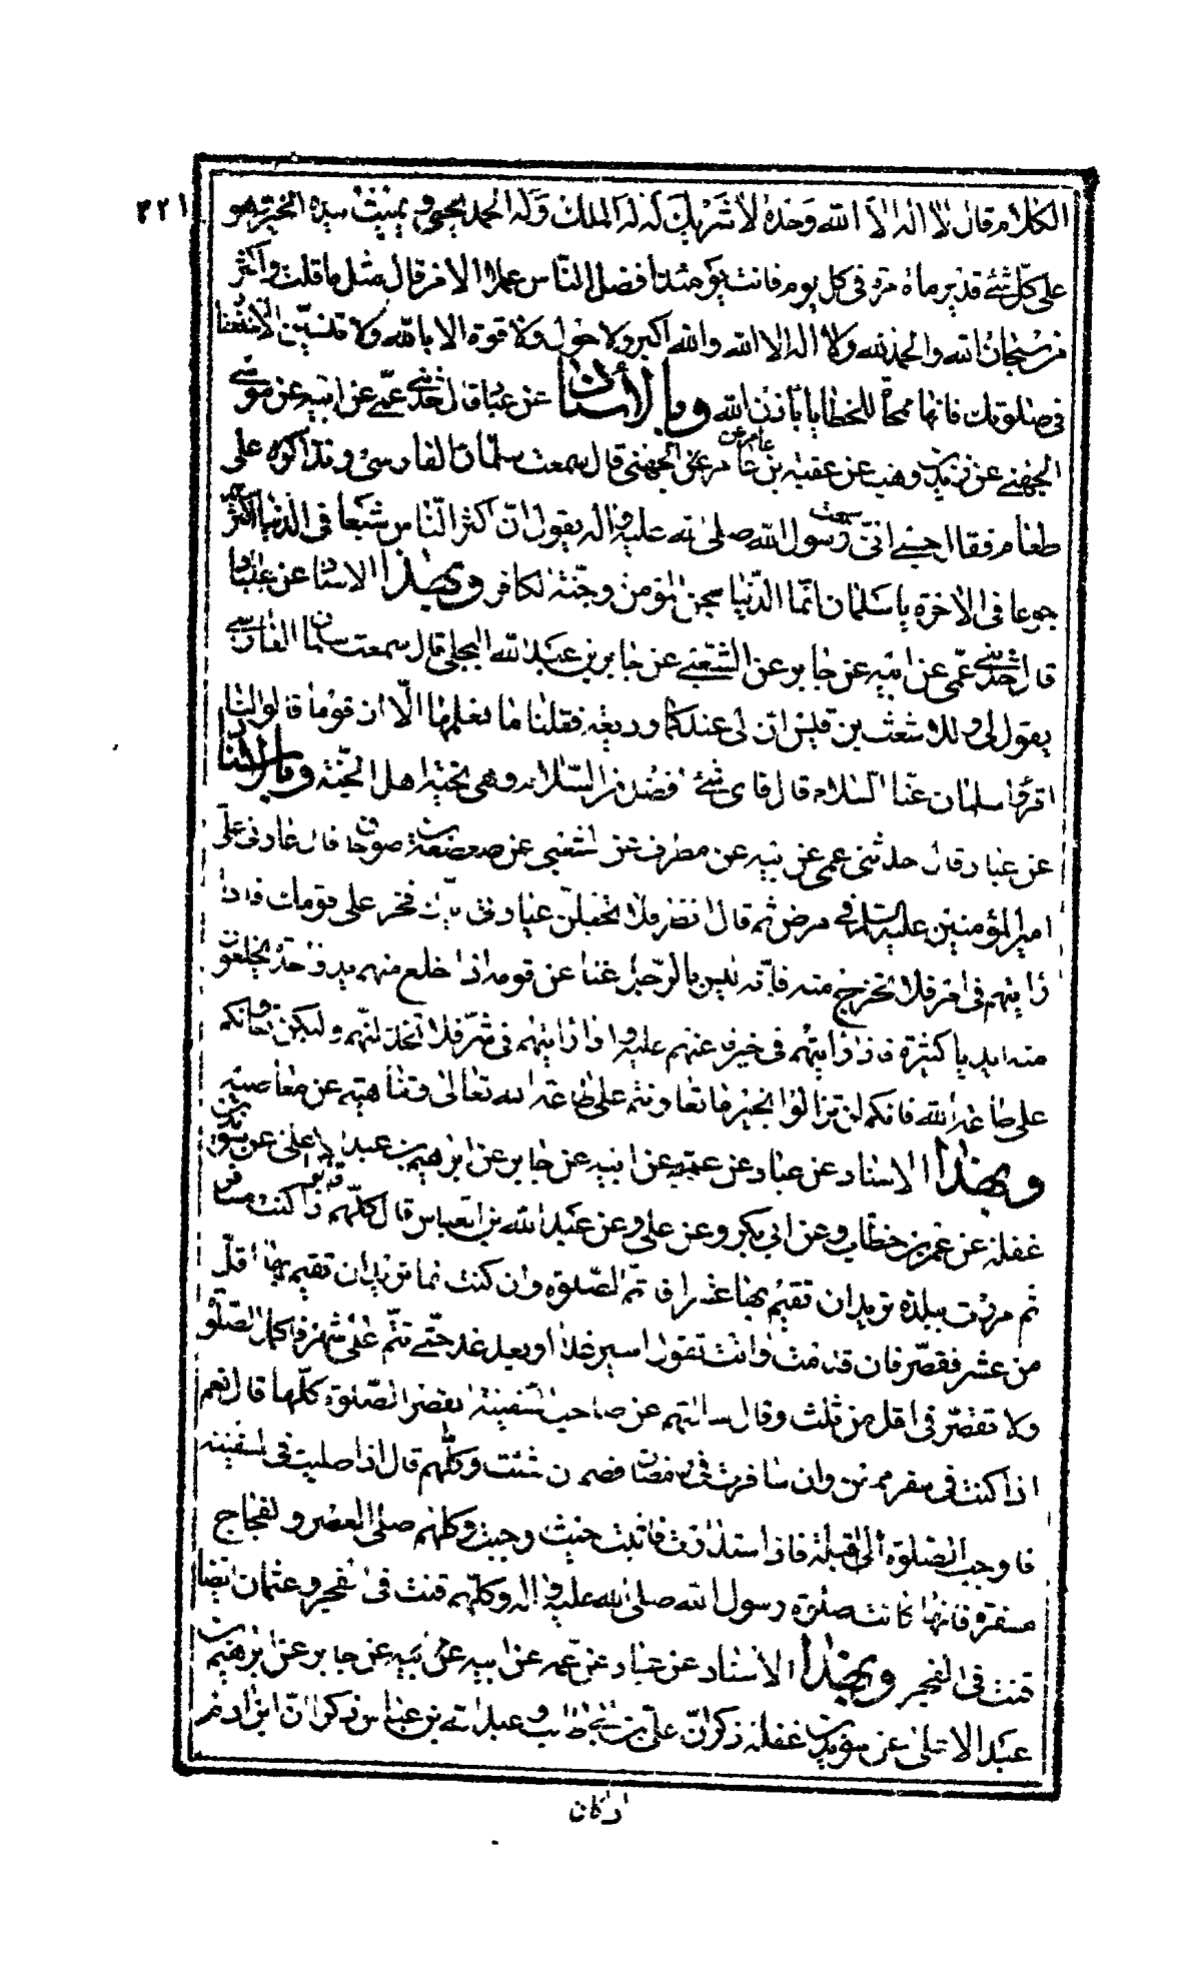 ٣٢١
الكلام قال لا اله الا الله وحده لا شريك له له الملك وله الحمد يحيى ويميت بيده الخير وهو
على كل شئ قدير مأة مرة فى كل يوم فانت يومئذ افضل الناس عملا الا من قال مثل ما قلت واكثر
من سبحان الله والحمد لله ولا اله الا الله والله اكبر ولا حول ولا قوة الا بالله ولا تنسين الاستغفار
فى صلوتك فانها ممحاة للخطايا باذن الله وبالاسناد عن عباد قال حدثنى عمى عن ابيه عن موسى
الجهنى عن زيد بن وهب عن عقبة بن عامر عن الجهنى قال سمعت سلمان الفارسى وقد اكره على
طعام فقال حسبى انى سمعت رسول الله صلى الله عليه واله يقول ان اكثر الناس شبعا فى الدنيا اكثرهم
جوعا فى الاخرة يا سلمان انما الدنيا سجن المؤمن وجنة الكافر وبهذا الاسناد عن عباد
قال حدثنى عمى عن ابيه عن جابر عن الشعبى عن جابر بن عبد الله البجلى قال سمعت سلمان الفارسى
يقول لى وللاشعث بن قيس ان لى عندكما وديعة فقلنا ما نعلمها الا ان قوما قالوا لنا
اقرؤا سلمان عنا السلام قال فاى شئ افضل من السلام وهى تحية اهل الجنة وبالاسناد
عن عباد قال حدثنى عمى عن ابيه عن مطرف عن الشعبى عن صعصعة بن صوحان قال عادنى على
امير المؤمنين عليه السلام فى مرض ثم قال انظر فلا تجعلن عيادتى اياك فخر على قومك فاذا
رايتهم فى امر فلا تخرج منه فانه ليس بالرجل غنا عن قومه اذا خلع منهم يدا واحدة يخلعون
منه ايديا كثيرة فاذا رايتهم فى خير فاعنهم عليه واذا رايتهم فى شر فلا تخذلنهم وليكن تعاونكم
على طاعة الله فانكم لن تزالوا بخير ما تعاونتم على طاعة الله تعالى وتناهيتم عن معاصيه
وبهذا الاسناد عن عباد عن عمه عن ابيه عن جابر عن ابرهيم بن عبد الاعلى عن سويد بن
غفلة عن عمر بن خطاب وعن ابى بكر وعن على وعن عبد الله بن العباس قال كلهم قالوا اذا كنت مسافرا
ثم مررت ببلدة تريد ان تقيم بها عشرا فاتم الصلوة وان كنت انما تريد ان تقيم بها اقل
من عشر فقصر فان قدمت وانت تقول اسير غدا او بعد غد حتى تتم على شهر فاكمل الصلوة
ولا تقصر فى اقل من ثلث وقال سالتهم عن صاحب السفينة ايقصر الصلوة كلها قال نعم
اذا كنت فى سفر ممعن وان سافرت فى رمضان فصم ان شئت وكلهم قال اذا صليت فى السفينة
فاوجب الصلوة الى القبلة فاذا استدارت فاثبت حيث وجبت وكلهم صلى العصر والفجاج
مسفرة فانها كانت صلوة رسول الله صلى الله عليه واله وكلهم قنت فى الفجر وعثمان ايضا
قنت فى الفجر وبهذا الاسناد عن عباد عن عمه عن ابيه عن ابيه عن جابر عن ابرهيم بن
عبد الاعلى عن سويد بن غفلة ذكر ان على بن ابيطالب وعبد الله بن عباس ذكرا ان ابن ادم
اذا كان